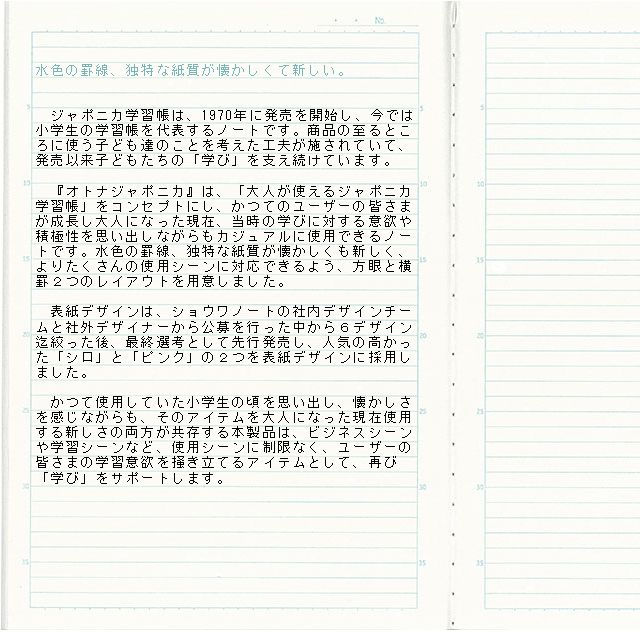 No.
水色の罫線、独特な紙質が懐かしくて新しい。
　ジャポニカ学習帳は、1970年に発売を開始し、今では
小学生の学習帳を代表するノートです。商品の至るとこ
ろに使う子ども達のことを考えた工夫が施されていて、
発売以来子どもたちの「学び」を支え続けています。
　『オトナジャポニカ』は、「大人が使えるジャポニカ
学習帳」をコンセプトにし、かつてのユーザーの皆さま
が成長し大人になった現在、当時の学びに対する意欲や
積極性を思い出しながらもカジュアルに使用できるノー
トです。水色の罫線、独特な紙質が懐かしくも新しく、
よりたくさんの使用シーンに対応できるよう、方眼と横
罫２つのレイアウトを用意しました。
　表紙デザインは、ショウワノートの社内デザインチー
ムと社外デザイナーから公募を行った中から６デザイン
迄絞った後、最終選考として先行発売し、人気の高かっ
た「シロ」と「ピンク」の２つを表紙デザインに採用し
ました。
　かつて使用していた小学生の頃を思い出し、懐かしさ
を感じながらも、そのアイテムを大人になった現在使用
する新しさの両方が共存する本製品は、ビジネスシーン
や学習シーンなど、使用シーンに制限なく、ユーザーの
皆さまの学習意欲を掻き立てるアイテムとして、再び
「学び」をサポートします。
5
10
15
20
25
30
35
5
10
15
20
25
30
35